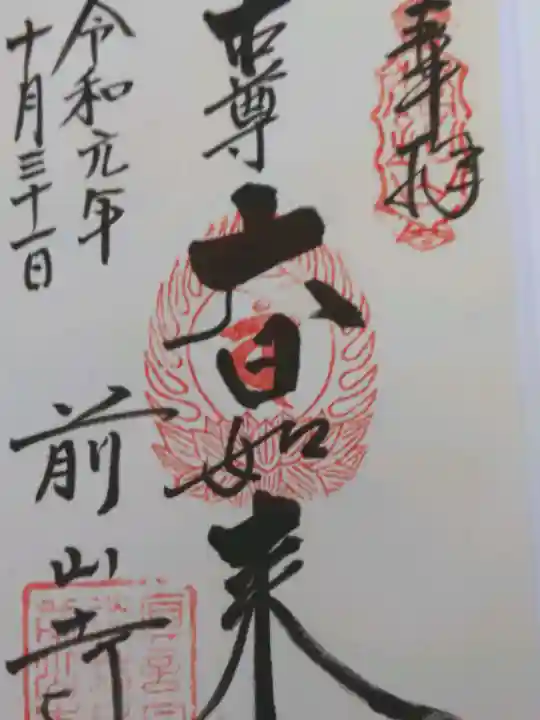 奉拝
本尊 大日如来
前山寺
令和元年
十月三十一日